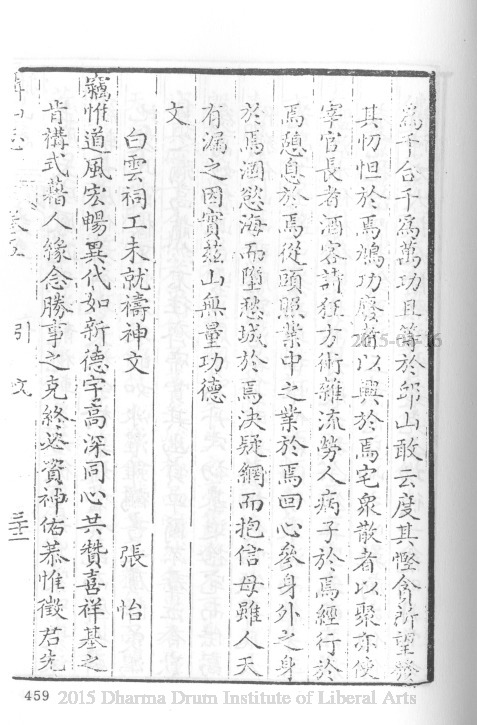 為千合千為萬功且等於邱山敢云度其慳貪所望發
其忉怛於焉鳩功廢者以興於焉宅衆散者以聚亦使
宰官長者酒客詩狂方術雜流勞人病子於焉經行於
焉憩息於焉從頭照業中之業於焉回心參身外之身
於焉涸慾海而墮愁城於焉決疑網而抱信母雖人天
有漏之因實茲山無量功德
文
白雲祠工未就禱神文 張怡
竊惟道風宏暢異代如新德宇高深同心共贊喜祥基之
肯構式藉人緣念勝事之克終必資神佑恭惟徵君先
山志 卷五 引文 三十二
2015-04-16
459 2015 Dharma Drum Institute of Liberal Arts